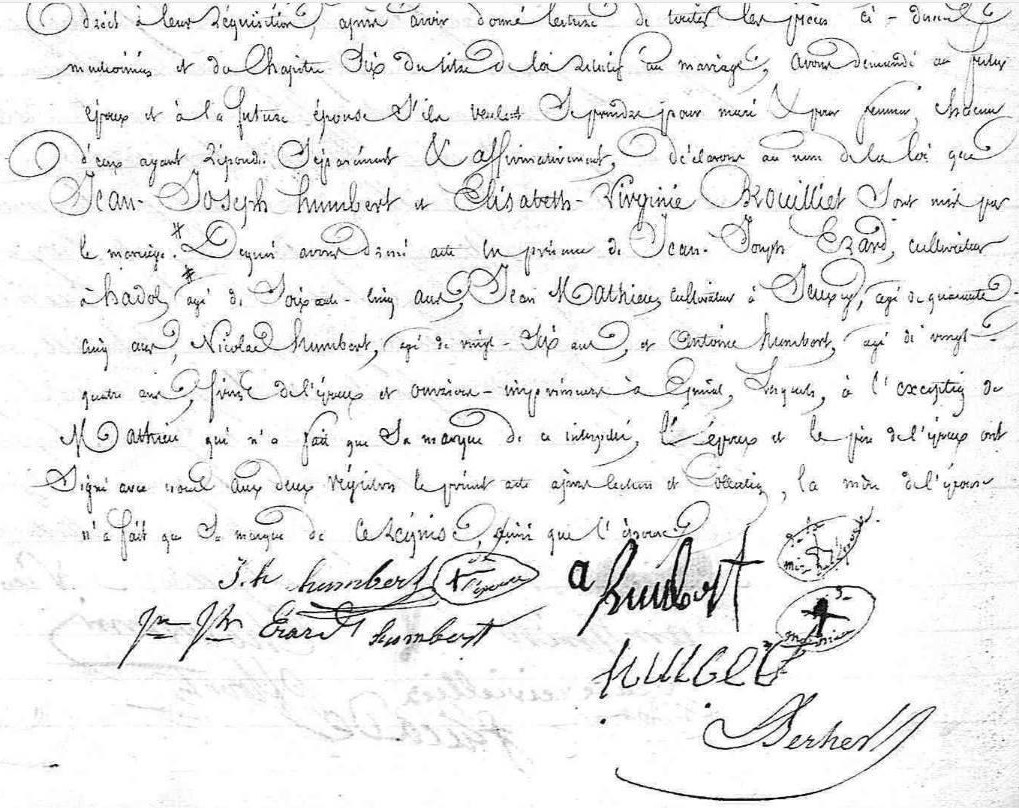 droit à leur Réquisition, après avoir donné lecture de toutes les pièces ci-dessus
mentionnées et du Chapitre Six du titre de la loi relatif au mariage, avons demandé au futur
époux et à la future épouse S'ils veulent Se prendre pour mari & pour femme, chacun
d'eux ayant Répondu Séparément & affirmativement, déclarons au nom de la loi que
Jean-Joseph humbert et Elisabeth-Virginie Rouilliet Sont unis par
le mariage. # Dequoi avons dressé acte en présence de Jean-Joseph Erard, cultivateur
à hadol, # agé de Soixante-cinq ans, Jean Mathieu, cultivateur à agé de quarante-
cinq ans, Nicolas humbert, agé de vingt-Six ans, et Antoine humbert, agé de vingt-
quatre ans, de l'époux et ouvriers-imprimeurs à Epinal, Lesquels, à l'exception de
Mathieu qui n'a fait que Sa marque de ce interpellé, l'époux et le père de l'époux ont
Signé avec nous aux deux régistres le présent acte après lecture et Collation, la mère de l'épouse
n'a fait que Sa marque de Ce Réquise, ainsi que l'épouse
J.h humbert + de l'épouse a humbert
Jn Jh Erard humbert + de Mathieu
Berher